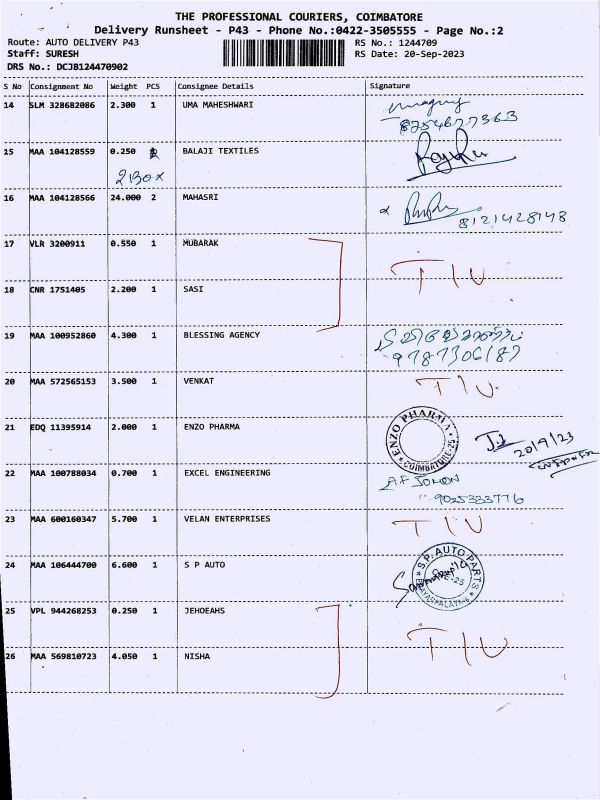 THE PROFESSIONAL COURIERS, COIMBATORE
Delivery Runsheet - P43 - Phone No.:0422-3505555 - Page No.:2
Route: AUTO DELIVERY P43 RS No.: 1244709
Staff: SURESH RS Date: 20-Sep-2023
DRS No.: DCJB124470902
S No Consignment No Weight PCS Consignee Details Signature
14 SLM 328682086 2.300 1 UMA MAHESHWARI
8254677363
15 MAA 104128559 0.250 BALAJI TEXTILES
2 Box
16 MAA 104128566 24.000 2 MAHASRI
8121428148
17 VLR 3200911 0.550 1 MUBARAK
T I U
18 CNR 1751405 2.200 1 SASI
19 MAA 100952860 4.300 1 BLESSING AGENCY
9787306187
20 MAA 572565153 3.500 1 VENKAT T I U
21 EDQ 11395914 2.000 1 ENZO PHARMA ENZO PHARMA COIMBATORE-25
20/9/23
22 MAA 100788034 0.700 1 EXCEL ENGINEERING
9025333776
23 MAA 600160347 5.700 1 VELAN ENTERPRISES T I U
24 MAA 106444700 6.600 1 S P AUTO S.P. AUTO PARTS
25 VPL 944268253 0.250 1 JEHOEAHS
T I U
26 MAA 569810723 4.050 1 NISHA